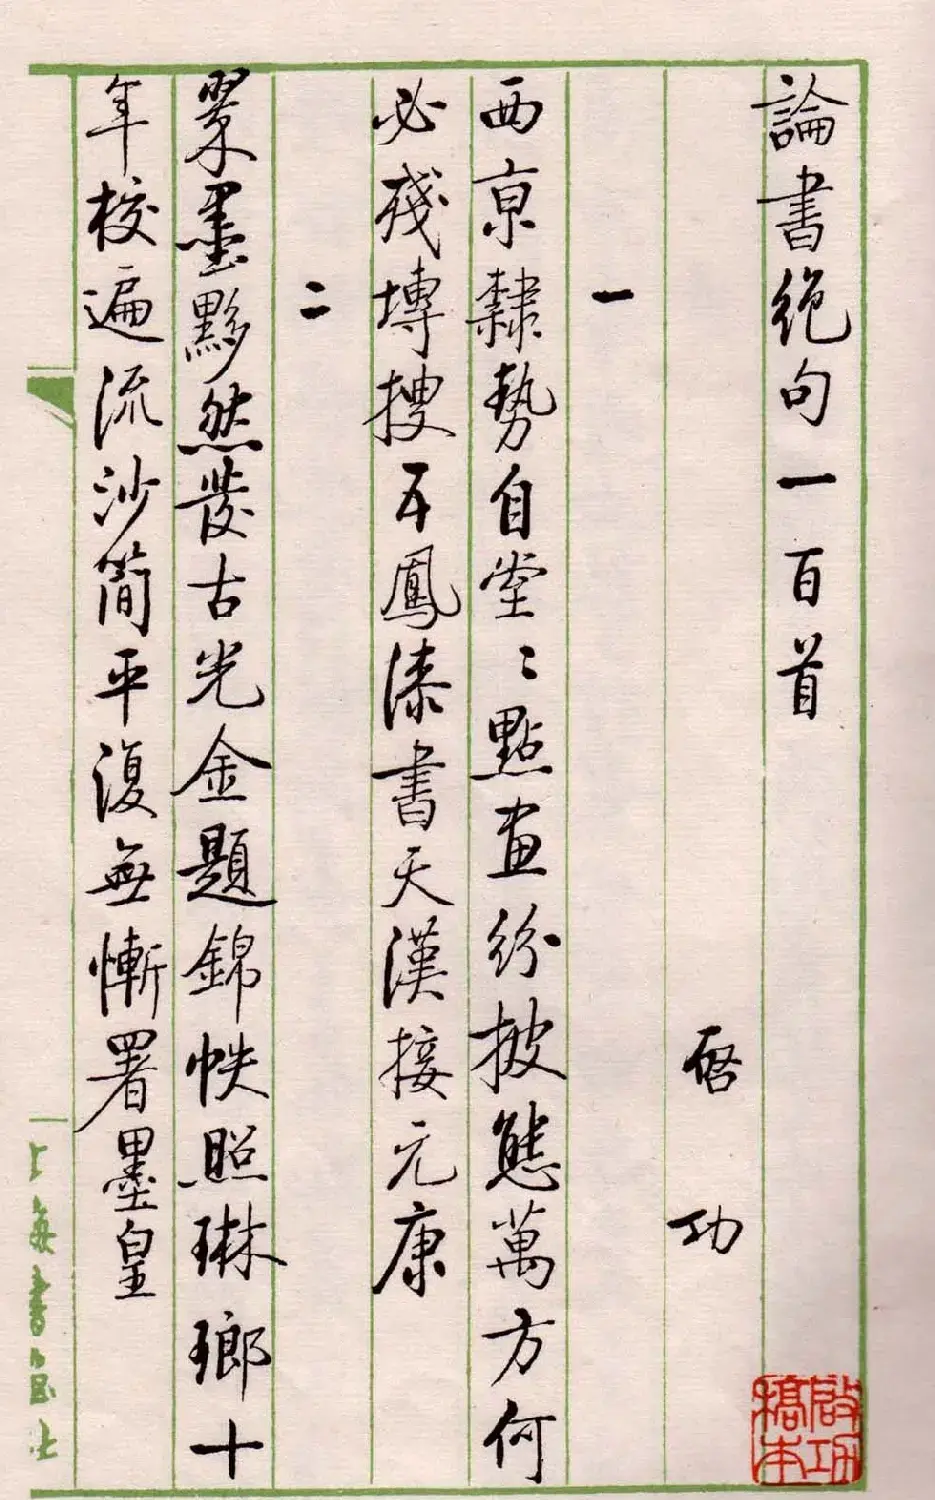 論書絕句一百首
啓功
一
西京隸勢自堂〻點畫紛披態萬方何
必殘塼搜五鳳漆書天漢接元康
二
翠墨黟然發古光金題錦帙照琳瑯十
年校遍流沙簡平復無慚署墨皇
啟功稿本
上海書畫社